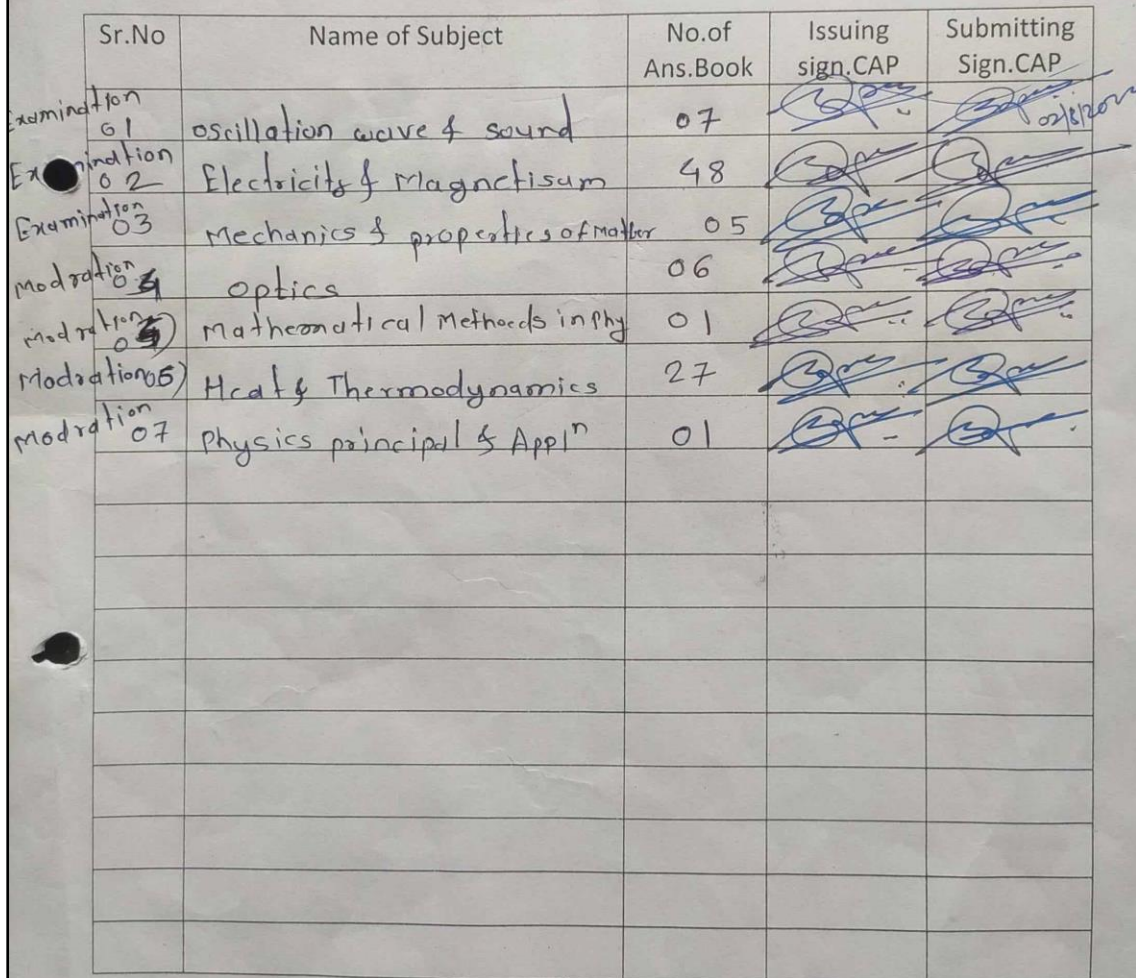 Sr.No Name of Subject No.of Ans.Book Issuing sign.CAP Submitting Sign.CAP
Examination 01 oscillation wave & sound 07 02/8/202
Examination 02 Electricity & Magnetisum 48
Examination 03 Mechanics & properties of Matter 05
Modration 04 optics 06
modration Mathematical Methoeds in phy 01
Modration 05) Heat & Thermodynamics 27
Modration 07 Physics principal & Applⁿ 01